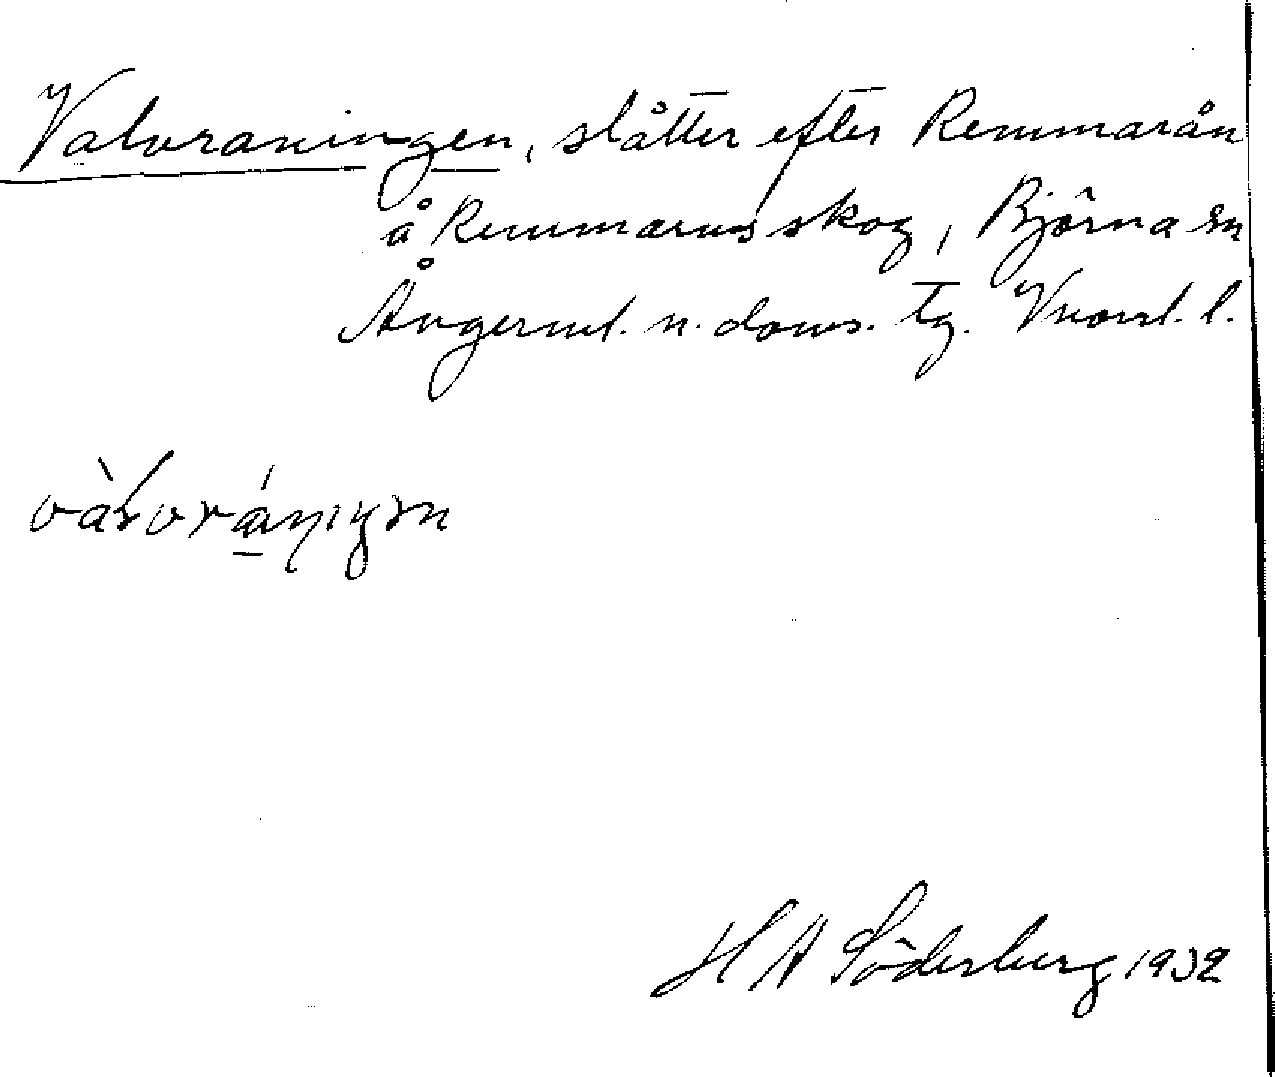 Valvraningen, slåtter efter Remmarån
å Remmarns skog, Björna sn
Ångerml. n. doms. tg. Vnorrl. l.
H A Söderberg 1932